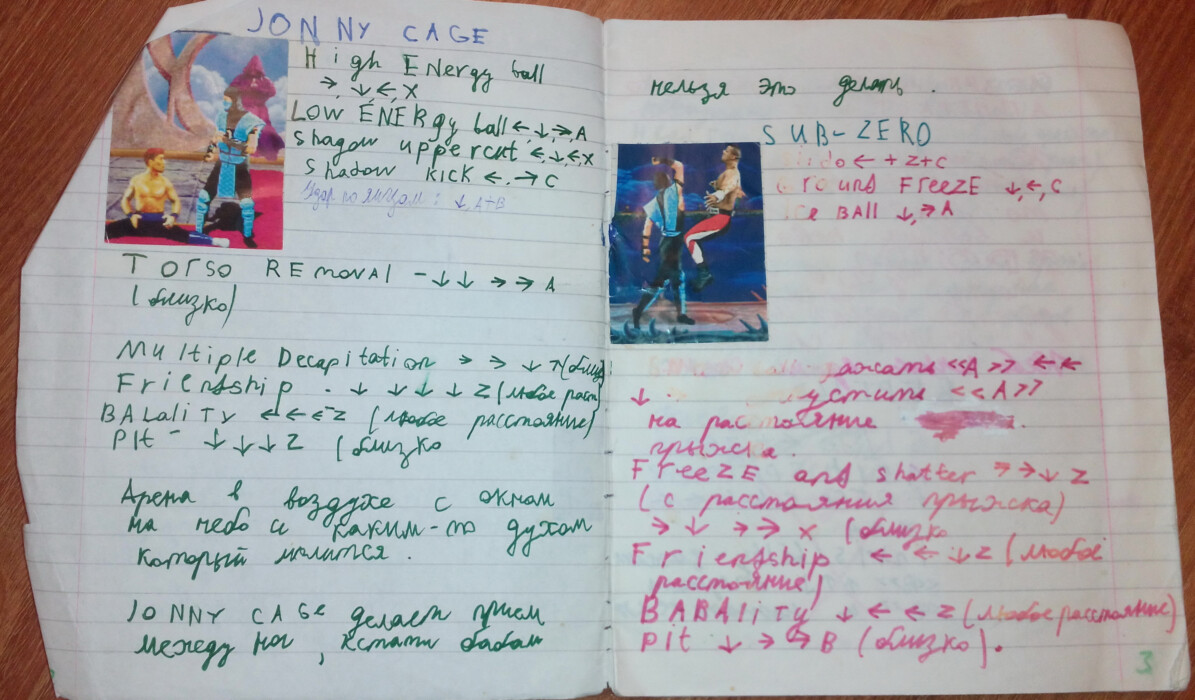 JONNY CAGE
High ENergy ball
→, ↓, ←, X
LOW ENERgy ball ←, ↓, →, A
Shadow uppercut ←, ↓, ←, X
Shadow KICK ←, → C
Удар по яйцам: ↓, A+B
Torso REmoval – ↓ ↓ → → A
(близко)
Multiple Decapitation → → ↓ ↑ (близ
Friendship - ↓ ↓ ↓ ↓ Z (любое расст)
BALALITY ← ← ← Z (любое расстояние)
Pit – ↓ ↓ ↓ Z (близко
Арена в воздухе с окнам
на небо и каким-то духом
который молится.
JONNY CAGE делает прием
между ног, кстати бабам
нельзя это делать.
SUB-ZERO
← + Z+C
round FreeZE ↓, ←, C
ce BAll ↓, → A
жать «A» ← ←
↓ устить «A»
на расстояние
прыжка.
FreeZE and shatter → → ↓ Z
(с расстояния прыжка)
→ ↓ → → X (близко
Friendship ← ← ↓ Z (любое
расстояние)
BABALITY ↓ ← ← Z (любое расстояние)
Pit ↓ → → B (близко).
3